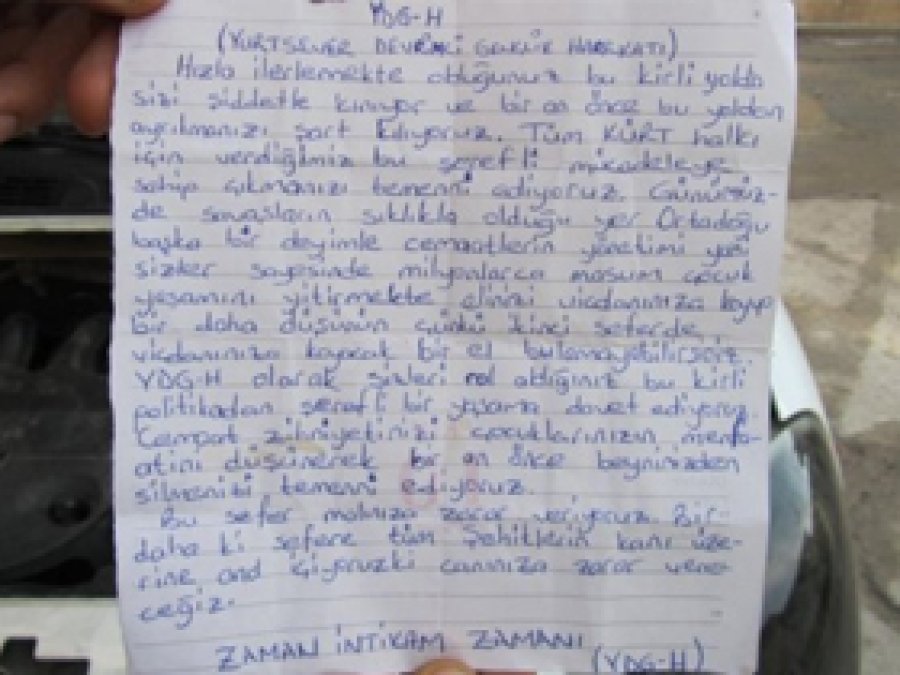 YDG-H
(YURTSEVER DEVRİMCİ GENÇLİK HAREKATI)
Hızla ilerlemekte olduğunuz bu kirli yolda
sizi şiddetle kınıyor ve bir an önce bu yoldan
ayrılmanızı şart kılıyoruz. Tüm KÜRT halkı
için verdiğimiz bu şerefli mücadeleye
sahip çıkmanızı temenni ediyoruz. Günümüz-
de savaşların sıklıkla olduğu yer Ortadoğu
başka bir deyimle cemaatlerin yönetimi
sizler sayesinde milyonlarca masum çocuk
yaşamını yitirmekte elinizi vicdanınıza koyup
bir daha düşünün çünkü ikinci seferde
vicdanınıza koyacak bir el bulamayabilirsiniz.
YDG-H olarak sizleri rol aldığınız bu kirli
politikadan şerefli bir yaşama davet ediyoruz.
Cemaat zihniyetinizi çocuklarınızın menfa-
atini düşünerek bir an önce beyninizden
silmenizi temenni ediyoruz.
Bu sefer malınıza zarar veriyoruz. Bir-
daha ki sefere tüm Şehitlerin kanı üze-
rine and içiyoruzki canınıza zarar vere-
ceğiz.
ZAMAN İNTİKAM ZAMANI
(YDG-H)